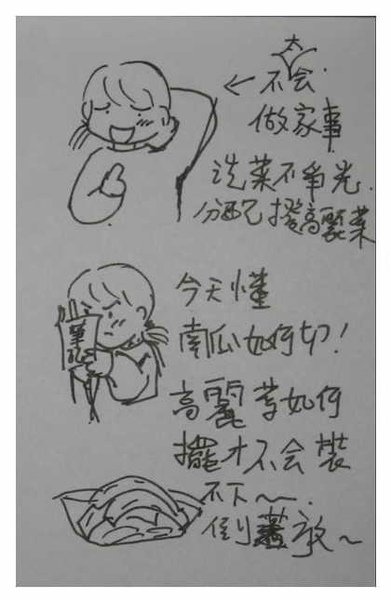 太
← 不会
做家事
洗菜不爭光.
分配撥高麗菜
筆記
今天懂
南瓜如何切!
高麗菜如何
擺才不会裝
不下~.
倒蓋放~